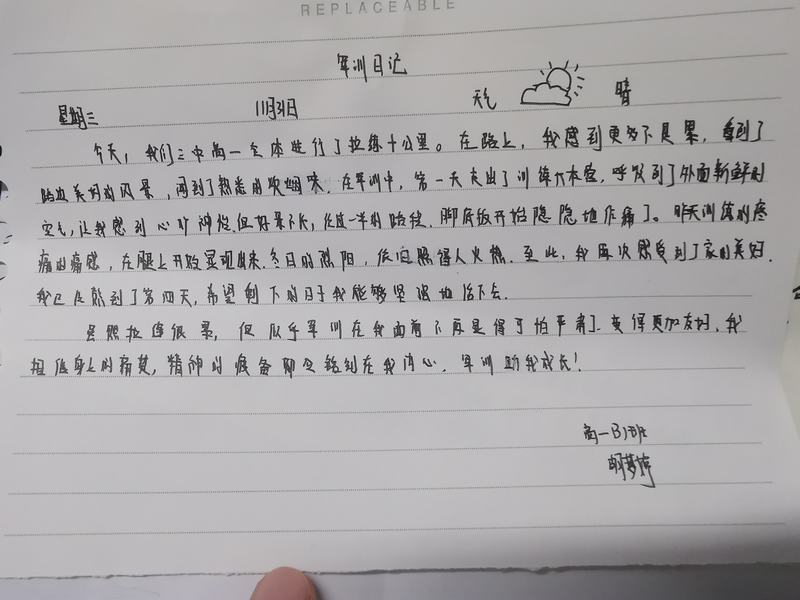 REPLACEABLE
军训日记
星期三 11月31日 天气 晴
今天，我们三中高一全体进行了拉练十公里。在路上，我感到更多不是累，看到了
路边美好的风景，闻到了熟悉的炊烟味。在军训中，第一天走出了训练大本营，呼吸到了外面新鲜的
空气，让我感到心旷神怡。但好景不长，在这一半的路径，脚底板开始隐隐地作痛了。昨天训练的疼
痛的痛感，在腿上开始显现出来。冬日的烈阳，依旧照得人火热。至此，我再次感受到了家的美好。
我已经熬到了第四天，希望剩下的日子我能够坚强地活下去。
虽然拉练很累，但似乎军训在我面前不再显得可怕严肃了。变得更加友好，我
身上的痛楚，精神的疲惫 刻在我内心。军训助我成长！
高一(3)班